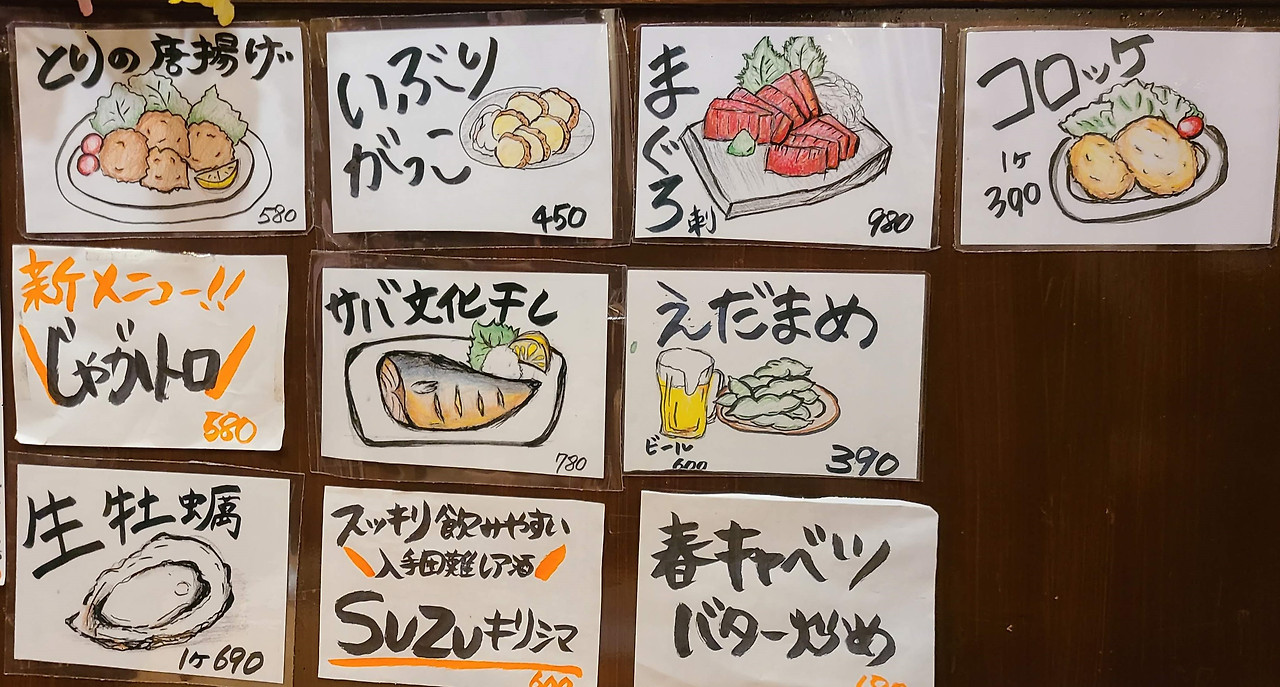 とりの唐揚げ
580
いぶり
がっこ
450
まぐろ刺
980
コロッケ
1ヶ
390
新メニュー!!
じゃがバトロ
580
サバ文化干し
780
えだまめ
ビール
600
390
生牡蠣
1ヶ690
スッキリ飲みやすい
入手困難レア酒
SUZUキリシマ
600
春キャベツ
バター炒め